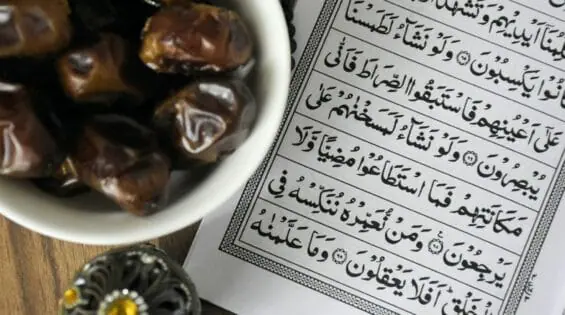 اَيْدِيْهِمْ وَتَشْهَدُ
يَكْسِبُوْنَ ﴿٦٥﴾ وَلَوْ نَشَآءُ لَطَمَسْنَا
عَلٰٓى اَعْيُنِهِمْ فَاسْتَبَقُوا الصِّرَاطَ فَاَنّٰى
يُبْصِرُوْنَ ﴿٦٦﴾ وَلَوْ نَشَآءُ لَمَسَخْنٰهُمْ عَلٰى
مَكَانَتِهِمْ فَمَا اسْتَطَاعُوْا مُضِيًّا وَّلَا
يَرْجِعُوْنَ ﴿٦٧﴾ وَمَنْ نُّعَمِّرْهُ نُنَكِّسْهُ فِى
الْخَلْقِ اَفَلَا يَعْقِلُوْنَ ﴿٦٨﴾ وَمَا عَلَّمْنٰهُ